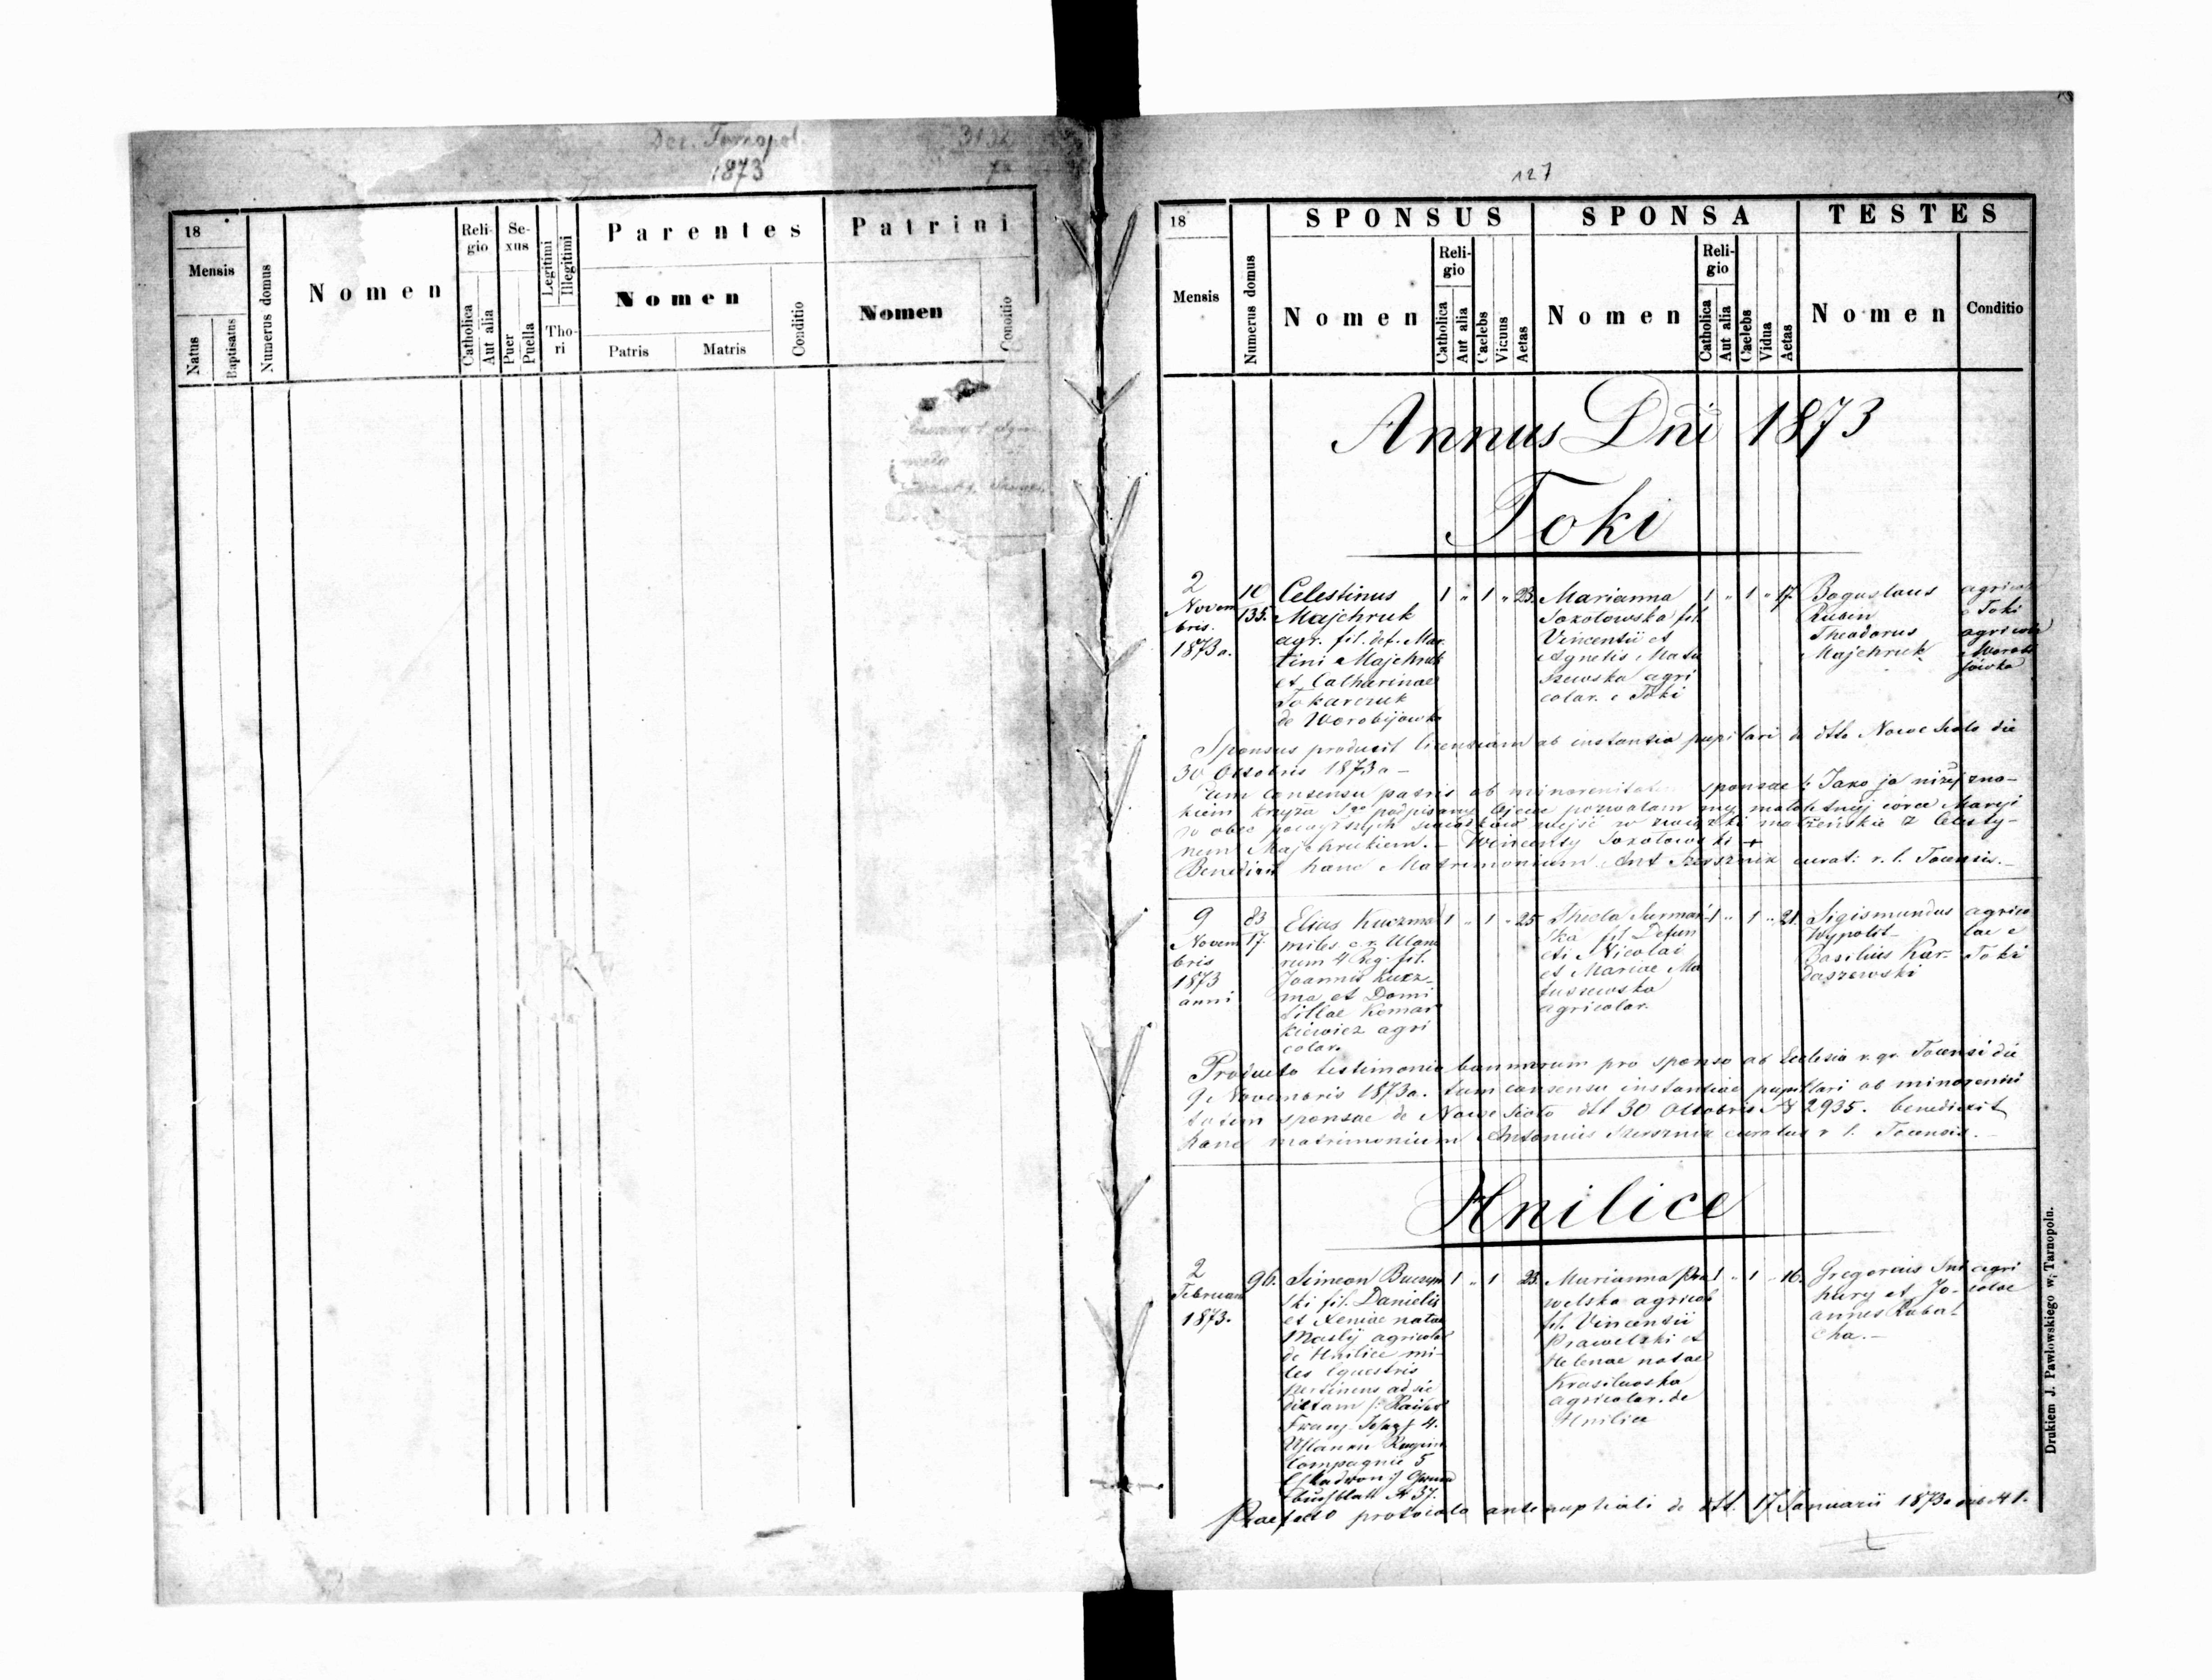 Dec. Tarnopol.
1873
18
Mensis
Natus
Baptisatus
Numerus domus
Nomen
Religio
Catholica
Aut alia
Sexus
Puer
Puella
Legitimi
Illegitimi
Thori
Parentes
Nomen
Patris
Matris
Conditio
Patrini
Nomen
Conditio
127
18
Mensis
Numerus domus
SPONSUS
Nomen
Religio
Catholica
Aut alia
Caelebs
Viduus
Aetas
SPONSA
Nomen
Religio
Catholica
Aut alia
Caelebs
Vidua
Aetas
TESTES
Nomen
Conditio
Annus Dni 1873
Toki
2
Novem
bris.
1873 a.
10
135.
Celestinus
Majchruk
agr. fil. def. Mar
tini Majchruk
et Catharinae
Tokarczuk
de Worobijowka
1 " 1 " 23.
Marianna
Sokołowska fil.
Vincentii et
Agnetis Matu
szewska agri
colar. e Toki
1 " 1 " 17.
Boguslaus
Rubin
Theodorus
Majchruk
agricola
e Toki
agricola
e Worobi
jówka
Sponsus produxit licentiam ab instantia pupilari de dtto Nowe Sioło die
30 Octobris 1873 a -
Cum consensu patris ob minorenitatem sponsae : Jako ja niżej zna-
kiem krzyża Sgo podpisany Ojciec pozwalam mej małoletniej córce Maryi
w obec powyższych świadków wejść w związki małżeńskie z Celesty-
nem Majchrukiem. - Wincenty Sokołowski +
Benedixit hanc Matrimonium Ant Szersznik curat: r. l. Tocensis. -
9
Novem
bris
1873
anni
83
17.
Elias Kuczma
miles c. r. Ulano
rum 4 Reg. fil.
Joannis Kucz-
ma et Domi
tillae Komar
kiewicz agri
colar.
1 " 1 " 25
Thecla Surmań
ska fil Defun
cti Nicolai
et Mariae Ma
tuszewska
agricolar.
1 " 1 " 21.
Sigismundus
Wypolit
Basilius Kar-
daszewski
agrico
lae e
Toki
Producto testimonio bannorum pro sponso ab Ecclesia r. gr. Tocensi die
9 Novembris 1873 a. tum consensu instantiae pupillari ob minorenni
tatem sponsae de Nowe Sioło dtt 30 Octobris N 2935. benedixit
hanc matrimonium Antonius Szersznik curatus r l. Tocensis. -
Hnilice
2
Februarii
1873.
96.
Simeon
ski fil. Danielis
et Xeniae natae
Maslij agricolar
de Hnilice mi-
les equestris
pertinens ad sic
dictam /: Kaiser
Franz Josef 4.
Uhlanen Regim
Compagnie 5
Eskadron :/ Grund
buchblatt N 37.
1 " 1 23.
Marianna Pra
welska agricol
fil. Vincentii
Prawelski et
Helenae natae
Krasilwska
agricolar. de
Hnilice
1 " 1 " 16.
Gregorius Sni
hury et Jo-
annes Rabar
cha. -
agri
colae
Praefecto protocolo antenuptiali de dtt. 17 Januarii 1873 a sub N 1.
Drukiem J. Pawłowskiego w Tarnopolu.